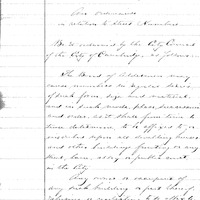 An Ordinance
in relation to Street Numbers
Be it ordained by the City Council
of the City of Cambridge, as follows:
The Board of Aldermen may
cause numbers of
of such form, size and material,
and in such mode, place, succession
and order, as it shall from time to
time determine, to be affixed to or
inscribed upon all dwelling houses
and other buildings fronting on any
street, lane, alley or public court
in the City
Any owner or occupant of
any such building or part thereof